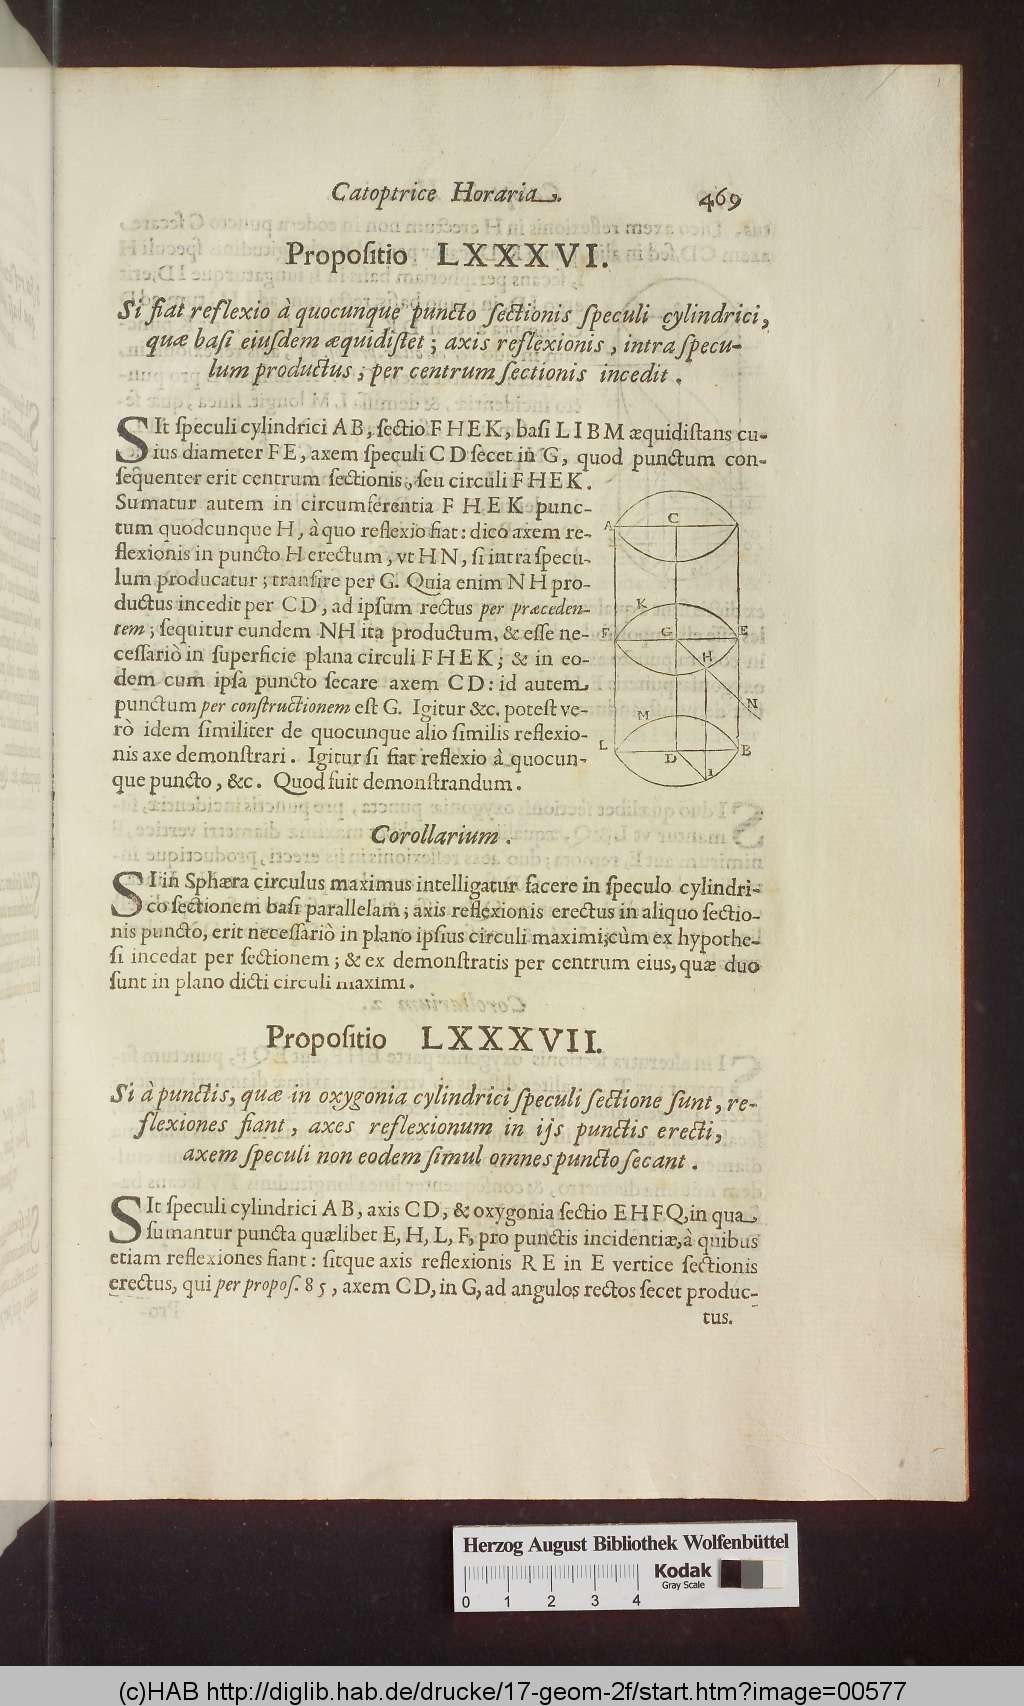 Catoptrice Horaria. 469
Propositio LXXXVI.
Si fiat reflexio à quocunque puncto sectionis speculi cylindrici,
quæ basi eiusdem æquidistet; axis reflexionis, intra specu-
lum productus, per centrum sectionis incedit.
SIt speculi cylindrici AB, sectio FHEK, basi LIBM æquidistans cu-
ius diameter FE, axem speculi CD secet in G, quod punctum con-
sequenter erit centrum sectionis, seu circuli FHEK.
Sumatur autem in circumferentia FHEK punc-
tum quodcunque H, à quo reflexio fiat: dico axem re-
flexionis in puncto H erectum, vt HN, si intra specu-
lum producatur; transire per G. Quia enim NH pro-
ductus incedit per CD, ad ipsum rectus per præceden-
tem; sequitur eundem NH ita productum, & esse ne-
cessariò in superficie plana circuli FHEK; & in eo-
dem cum ipsa puncto secare axem CD: id autem
punctum per constructionem est G. Igitur &c. potest ve-
rò idem similiter de quocunque alio similis reflexio-
nis axe demonstrari. Igitur si fiat reflexio à quocun-
que puncto, &c. Quod fuit demonstrandum.
A C
K
F G E
H
N
M
L D B
I
Corollarium.
SI in Sphæra circulus maximus intelligatur facere in speculo cylindri-
co sectionem basi parallelam; axis reflexionis erectus in aliquo sectio-
nis puncto, erit necessariò in plano ipsius circuli maximi; cùm ex hypothe-
si incedat per sectionem; & ex demonstratis per centrum eius, quæ duo
sunt in plano dicti circuli maximi.
Propositio LXXXVII.
Si à punctis, quæ in oxygonia cylindrici speculi sectione sunt, re-
flexiones fiant, axes reflexionum in ijs punctis erecti,
axem speculi non eodem simul omnes puncto secant.
SIt speculi cylindrici AB, axis CD, & oxygonia sectio EHFQ, in qua
sumantur puncta quælibet E, H, L, F, pro punctis incidentiæ, à quibus
etiam reflexiones fiant: sitque axis reflexionis RE in E vertice sectionis
erectus, qui per propos. 85, axem CD, in G, ad angulos rectos secet produc-
tus.
Herzog August Bibliothek Wolfenbüttel
Kodak
Gray Scale
0 1 2 3 4
(c)HAB http://diglib.hab.de/drucke/17-geom-2f/start.htm?image=00577